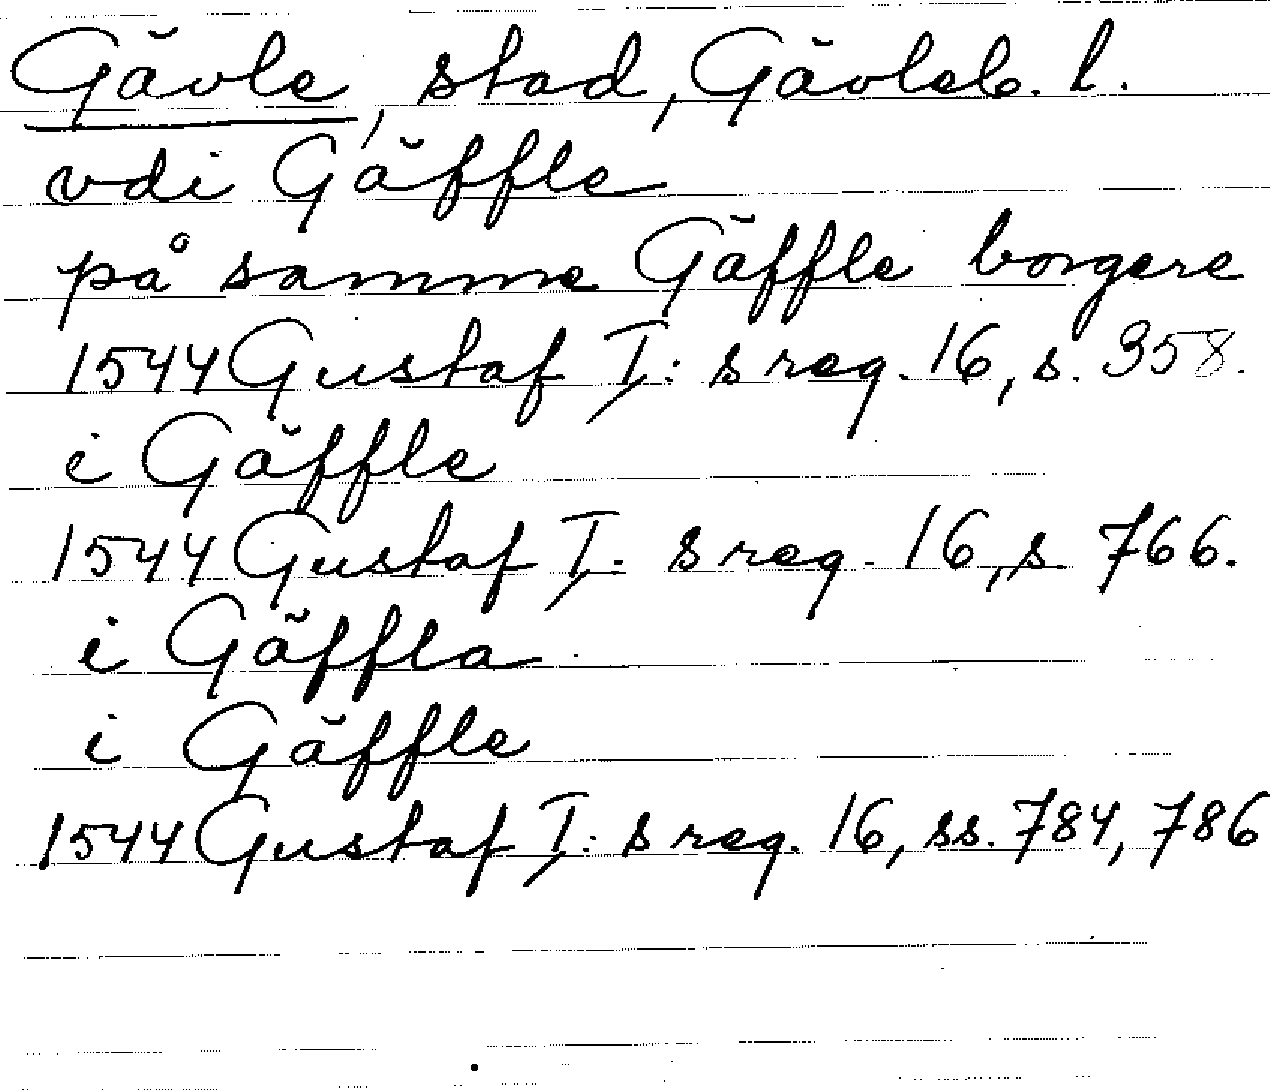 Gävle, stad, Gävleb. l.
vdi Gäffle
på samme Gäffle borgere
1544 Gustaf I:s reg. 16, s. 358.
i Gäffle
1544 Gustaf I:s reg. 16, s. 766.
i Gäffla
i Gäffle
1544 Gustaf I:s reg. 16, ss. 784, 786